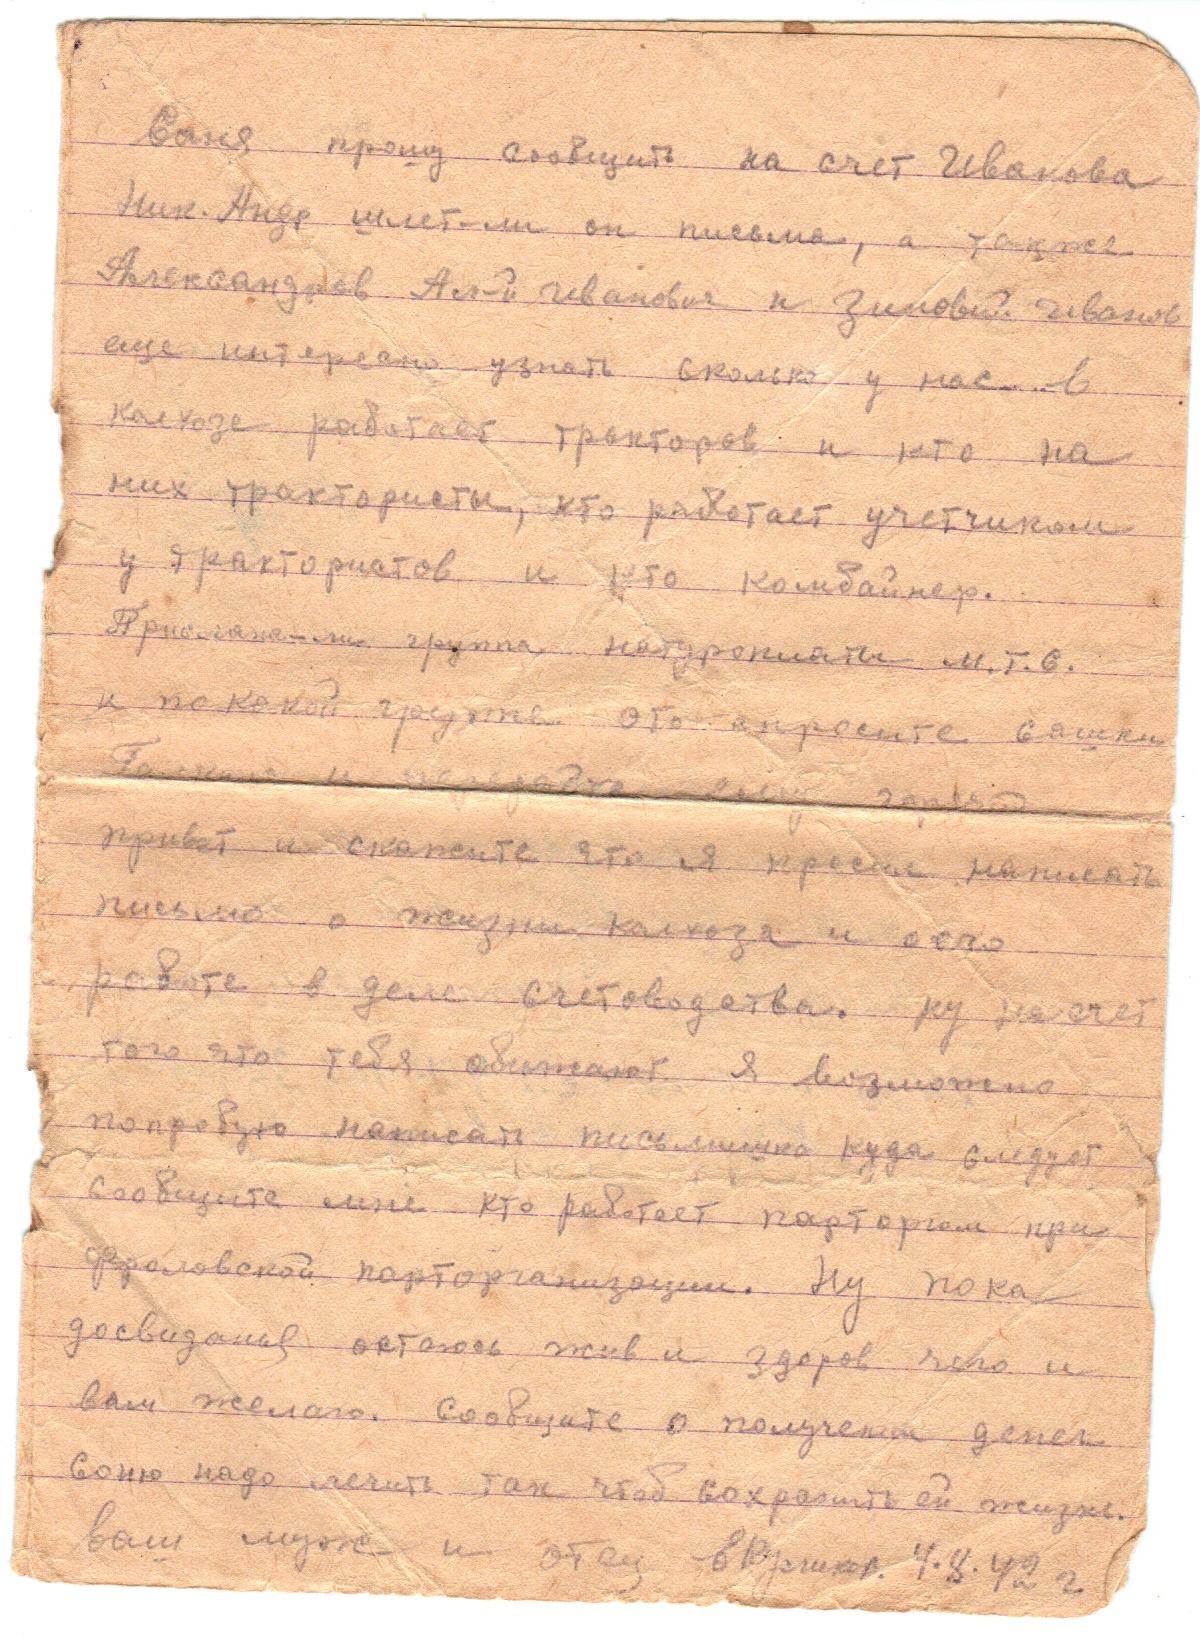 Саня прошу сообщить на счет Иванова
Ник. Андр шлет-ли он письма, а также
Александров Ал-й Иванович и Зиновий Иванов
еще интересно узнать сколько у нас в
колхозе работает тракторов и кто на
них трактористы, кто работает учетчиком
у трактористов и кто комбайнер.
Прислана-ли группа натуроплаты М.Т.С.
и по какой группе. Это спросите Сашки
и передайте ему горячий
привет и скажите что я просил написать
письмо о жизни колхоза и о его
работе в деле счетоводства. Ну на счет
того что тебя обижают я возможно
попробую написать письмишко куда следует
сообщите мне кто работает парторгом при
Фроловской парторганизации. Ну пока
досвиданья остаюсь жив и здоров чего и
вам желаю. Сообщите о получении денег
Соню надо лечить так чтоб сохранить ей жизнь.
ваш муж и отец 42 г